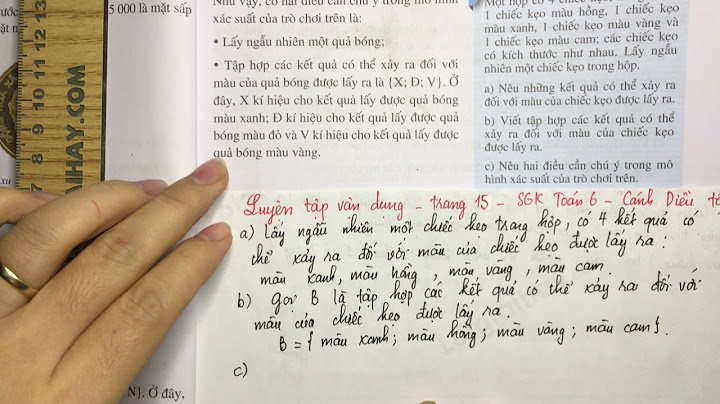 5 000 là mặt sấp
Như vậy, có hai điều cần chú ý trong mô hình
xác suất của trò chơi trên là:
• Lấy ngẫu nhiên một quả bóng;
• Tập hợp các kết quả có thể xảy ra đối với
màu của quả bóng được lấy ra là {X; Đ; V}. Ở
đây, X kí hiệu cho kết quả lấy được quả bóng
màu xanh; Đ kí hiệu cho kết quả lấy được quả
bóng màu đỏ và V kí hiệu cho kết quả lấy được
quả bóng màu vàng.
Một hộp có 4 chiếc kẹo,
1 chiếc kẹo màu hồng, 1 chiếc kẹo
màu xanh, 1 chiếc kẹo màu vàng và
1 chiếc kẹo màu cam; các chiếc kẹo
có kích thước như nhau. Lấy ngẫu
nhiên một chiếc kẹo trong hộp.
a) Nêu những kết quả có thể xảy ra
đối với màu của chiếc kẹo được lấy ra.
b) Viết tập hợp các kết quả có thể
xảy ra đối với màu của chiếc kẹo
được lấy ra.
c) Nêu hai điều cần chú ý trong mô
hình xác suất của trò chơi trên.
7 8 9 10 11 12 13
AIHAY.COM
Luyện tập vận dụng - trang 15 - SGK Toán 6 - Cánh Diều
a) Lấy ngẫu nhiên một chiếc kẹo trong hộp, có 4 kết quả có
thể xảy ra đối với màu của chiếc kẹo được lấy ra:
màu xanh, màu hồng, màu vàng, màu cam.
b) gọi B là tập hợp các kết quả có thể xảy ra đối với
màu của chiếc kẹo được lấy ra.
B = { màu xanh; màu hồng; màu vàng; màu cam}.
c)
N}. Ở đây,